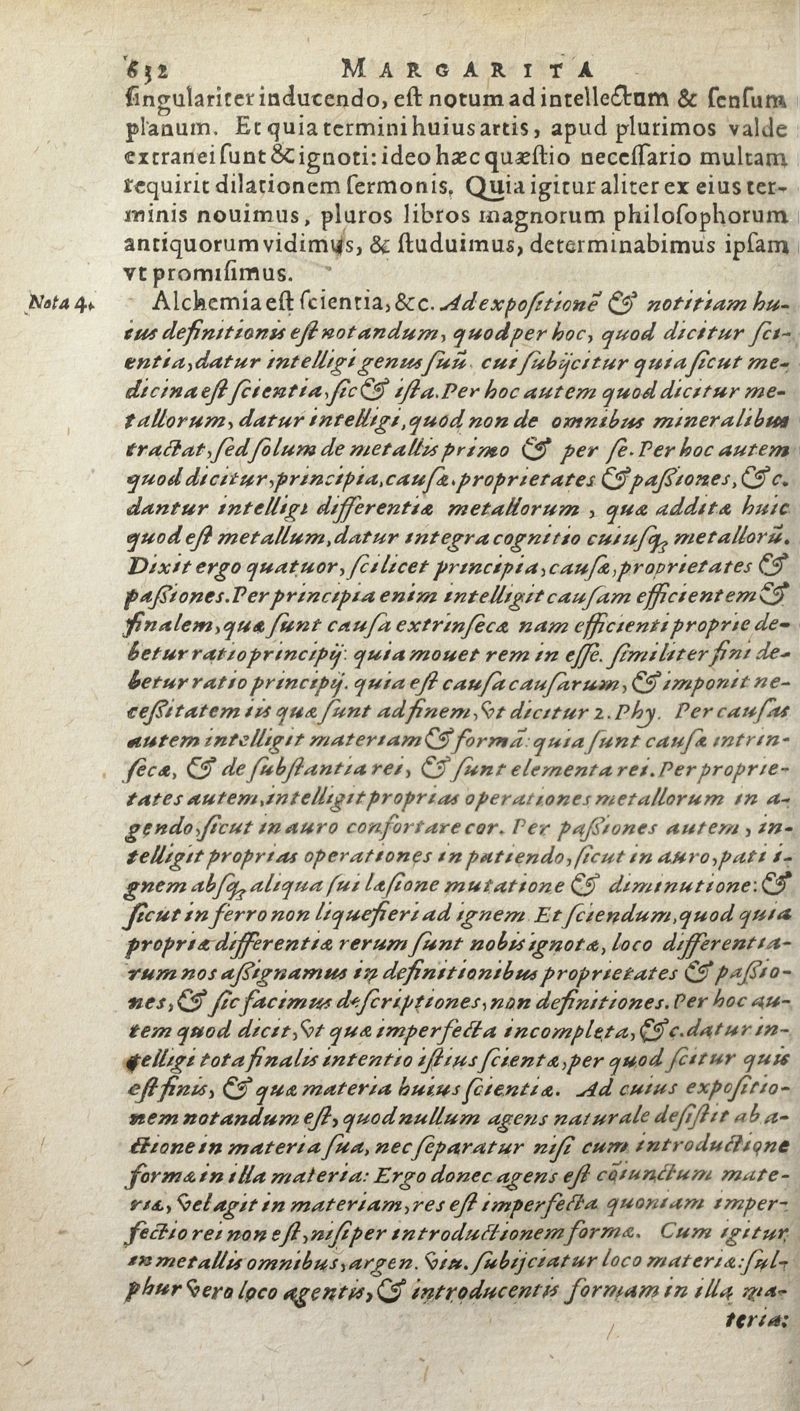 632 MARGARITA
ſingulariter inducendo, eſt notum ad intellectum & ſenſum
planum. Et quia termini huius artis, apud plurimos valde
extranei ſunt & ignoti: ideo hæc quæſtio neceſſario multam
requirit dilationem ſermonis. Quia igitur aliter ex eius ter-
minis nouimus, pluros libros magnorum philoſophorum
antiquorum vidimus, & ſtuduimus, determinabimus ipſam
vt promiſimus.
Nota 4. Alchemia eſt ſcientia, &c. Ad expoſitionē & notitiam hu-
ius definitionis eſt notandum, quod per hoc, quod dicitur ſci-
entia, datur intelligi genus ſuū cui ſubijcitur quia ſicut me-
dicina eſt ſcientia, ſic & iſta. Per hoc autem quod dicitur me-
tallorum, datur intelligi, quod non de omnibus mineralibus
tractat, ſed ſolum de metallis primo & per ſe. Per hoc autem
quod dicitur, principia, cauſæ. proprietates & paſsiones, &c.
dantur intelligi differentiæ metallorum, quæ addita huic
quod eſt metallum, datur integra cognitio cuiuſq; metallorū.
Dixit ergo quatuor, ſcilicet principia, cauſæ, proprietates &
paſsiones. Per principia enim intelligit cauſam efficientem &
finalem, quæ ſunt cauſa extrinſeca nam efficienti proprie de-
betur ratio principij: quia mouet rem in eſſe. ſimiliter fini de-
betur ratio principij. quia eſt cauſa cauſarum, & imponit ne-
ceſsitatem iis quæ ſunt ad finem, vt dicitur 2. Phy. Per cauſas
autem intelligit materiam & formā: quia ſunt cauſæ intrin-
ſecæ, & de ſubſtantia rei, & ſunt elementa rei. Per proprie-
tates autem, intelligit proprias operationes metallorum in a-
gendo, ſicut in auro confortare cor. Per paſsiones autem, in-
telligit proprias operationes in patiendo, ſicut in auro, pati i-
gnem abſq; aliqua ſui læſione mutatione & diminutione: &
ſicut in ferro non liquefieri ad ignem. Et ſciendum, quod quia
propriæ differentiæ rerum ſunt nobis ignotæ, loco differentia-
rum nos aſsignamus in definitionibus proprietates & paſsio-
nes, & ſic facimus deſcriptiones, non definitiones. Per hoc au-
tem quod dicit, vt quæ imperfecta incompleta, &c. datur in-
telligi tota finalis intentio iſtius ſcientæ, per quod ſcitur quis
eſt finis, & quæ materia huius ſcientiæ. Ad cuius expoſitio-
nem notandum eſt, quod nullum agens naturale deſiſtit ab a-
ctione in materia ſua, nec ſeparatur niſi cum introductione
formæ in illa materia: Ergo donec agens eſt cōiunctum mate-
riæ, vel agit in materiam, res eſt imperfecta quoniam imper-
fectio rei non eſt, niſi per introductionem formæ. Cum igitur
in metallis omnibus, argen. viu. ſubijciatur loco materiæ: ſul-
phur vero loco agentis, & introducentis formam in illa ma-
teria: